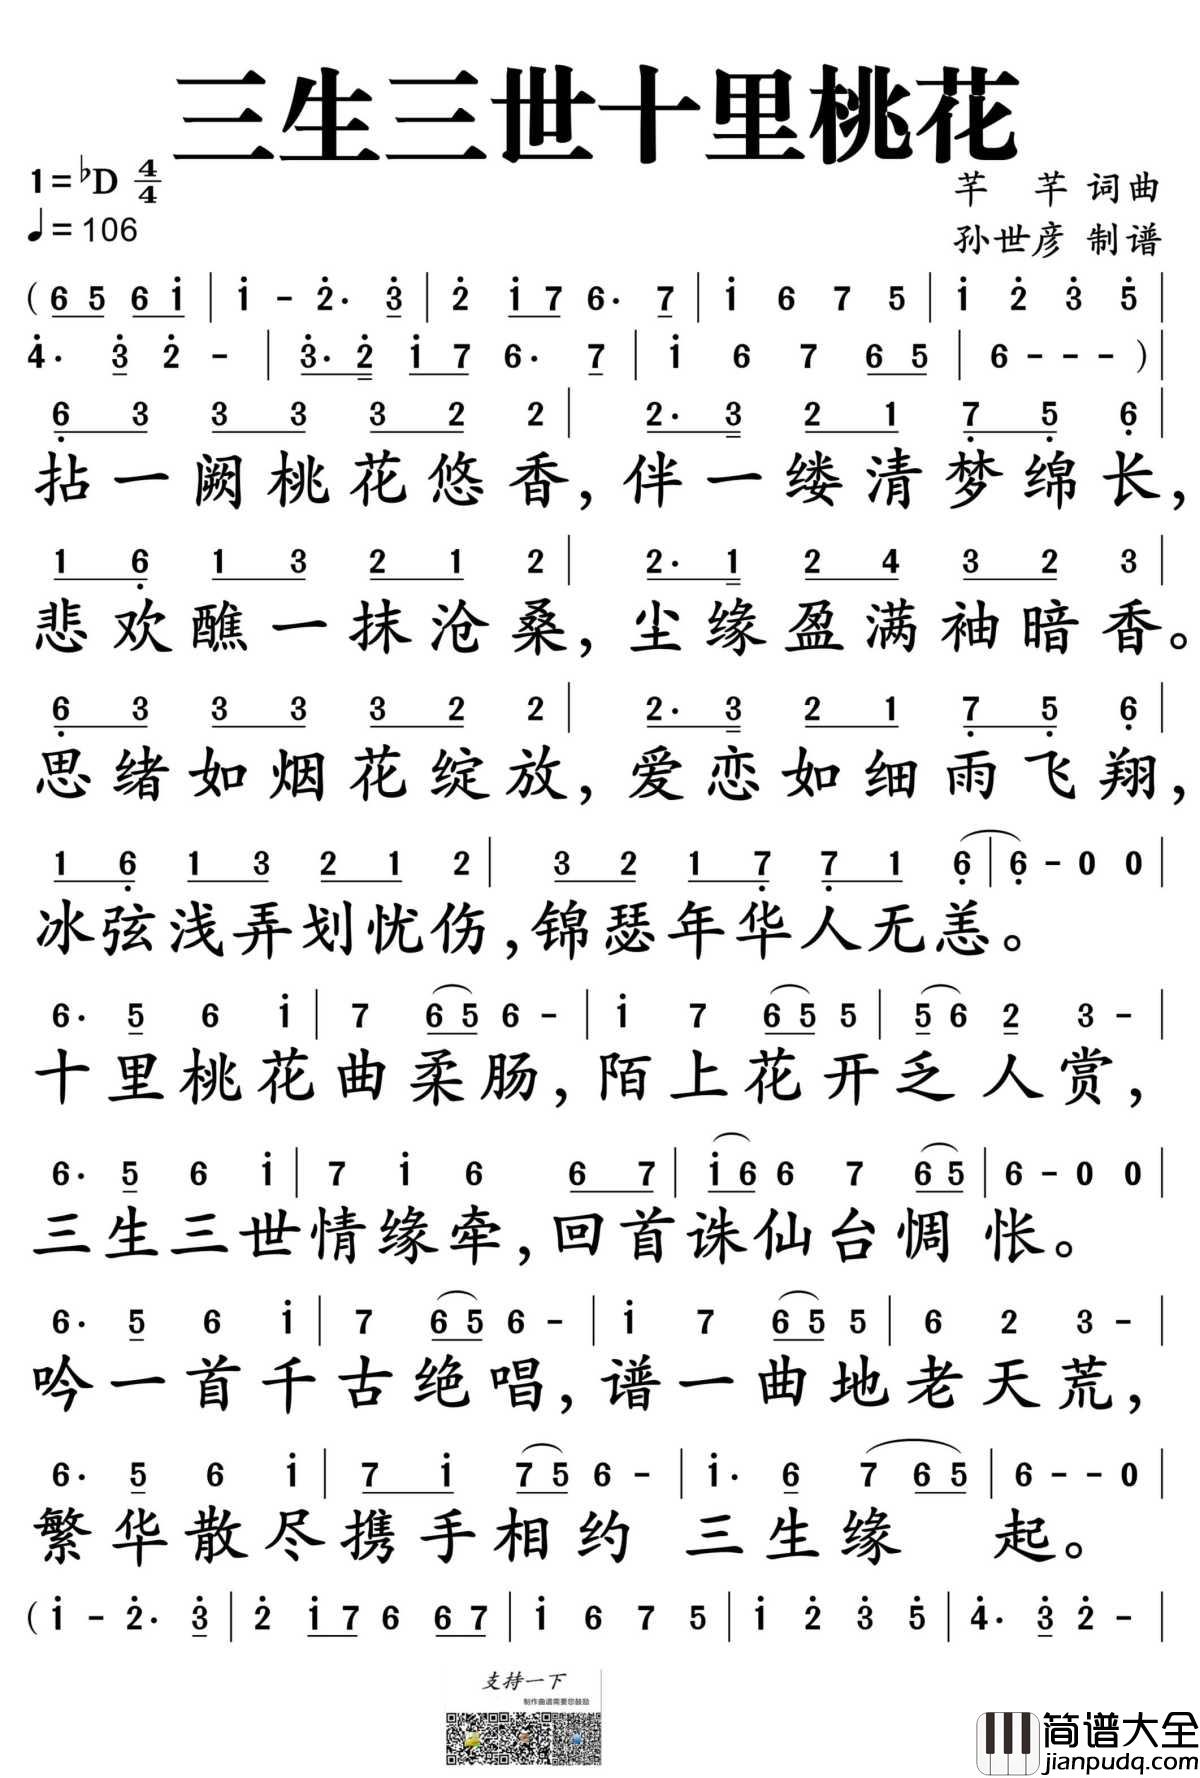 三生三世十里桃花
1=♭D 4/4
♩= 106
芊 芊 词曲
孙世彦 制谱
( 6 5 6 i | i - 2̇· 3̇ | 2̇ i 7 6· 7 | i 6 7 5 | i 2̇ 3̇ 5̇ |
4̇· 3̇ 2̇ - | 3̇· 2̇ i 7 6· 7 | i 6 7 6 5 | 6 - - - ) |
6̣ 3 3 3 3 2 2 | 2· 3 2 1 7̣ 5̣ 6̣ |
拈一阙桃花悠香，伴一缕清梦绵长，
1 6̣ 1 3 2 1 2 | 2· 1 2 4 3 2 3 |
悲欢醮一抹沧桑，尘缘盈满袖暗香。
6̣ 3 3 3 3 2 2 | 2· 3 2 1 7̣ 5̣ 6̣ |
思绪如烟花绽放，爱恋如细雨飞翔，
1 6̣ 1 3 2 1 2 | 3 2 1 7̣ 7̣ 1 6̣ | 6̣ - 0 0 |
冰弦浅弄划忧伤，锦瑟年华人无恙。
6· 5 6 i | 7 6 5 6 - | i 7 6 5 5 | 5 6 2 3 - |
十里桃花曲柔肠，陌上花开乏人赏，
6· 5 6 i | 7 i 6 6 7 | i 6 6 7 6 5 | 6 - 0 0 |
三生三世情缘牵，回首诛仙台惆怅。
6· 5 6 i | 7 6 5 6 - | i 7 6 5 5 | 6 2 3 - |
吟一首千古绝唱，谱一曲地老天荒，
6· 5 6 i | 7 i 7 5 6 - | i· 6 7 6 5 | 6 - - 0 |
繁华散尽携手相约 三生缘 起。
( i - 2̇· 3̇ | 2̇ i 7 6 6 7 | i 6 7 5 | i 2̇ 3̇ 5̇ | 4̇· 3̇ 2̇ - |
支持一下
制作曲谱需要您鼓励
简谱大全
jianpudq.com